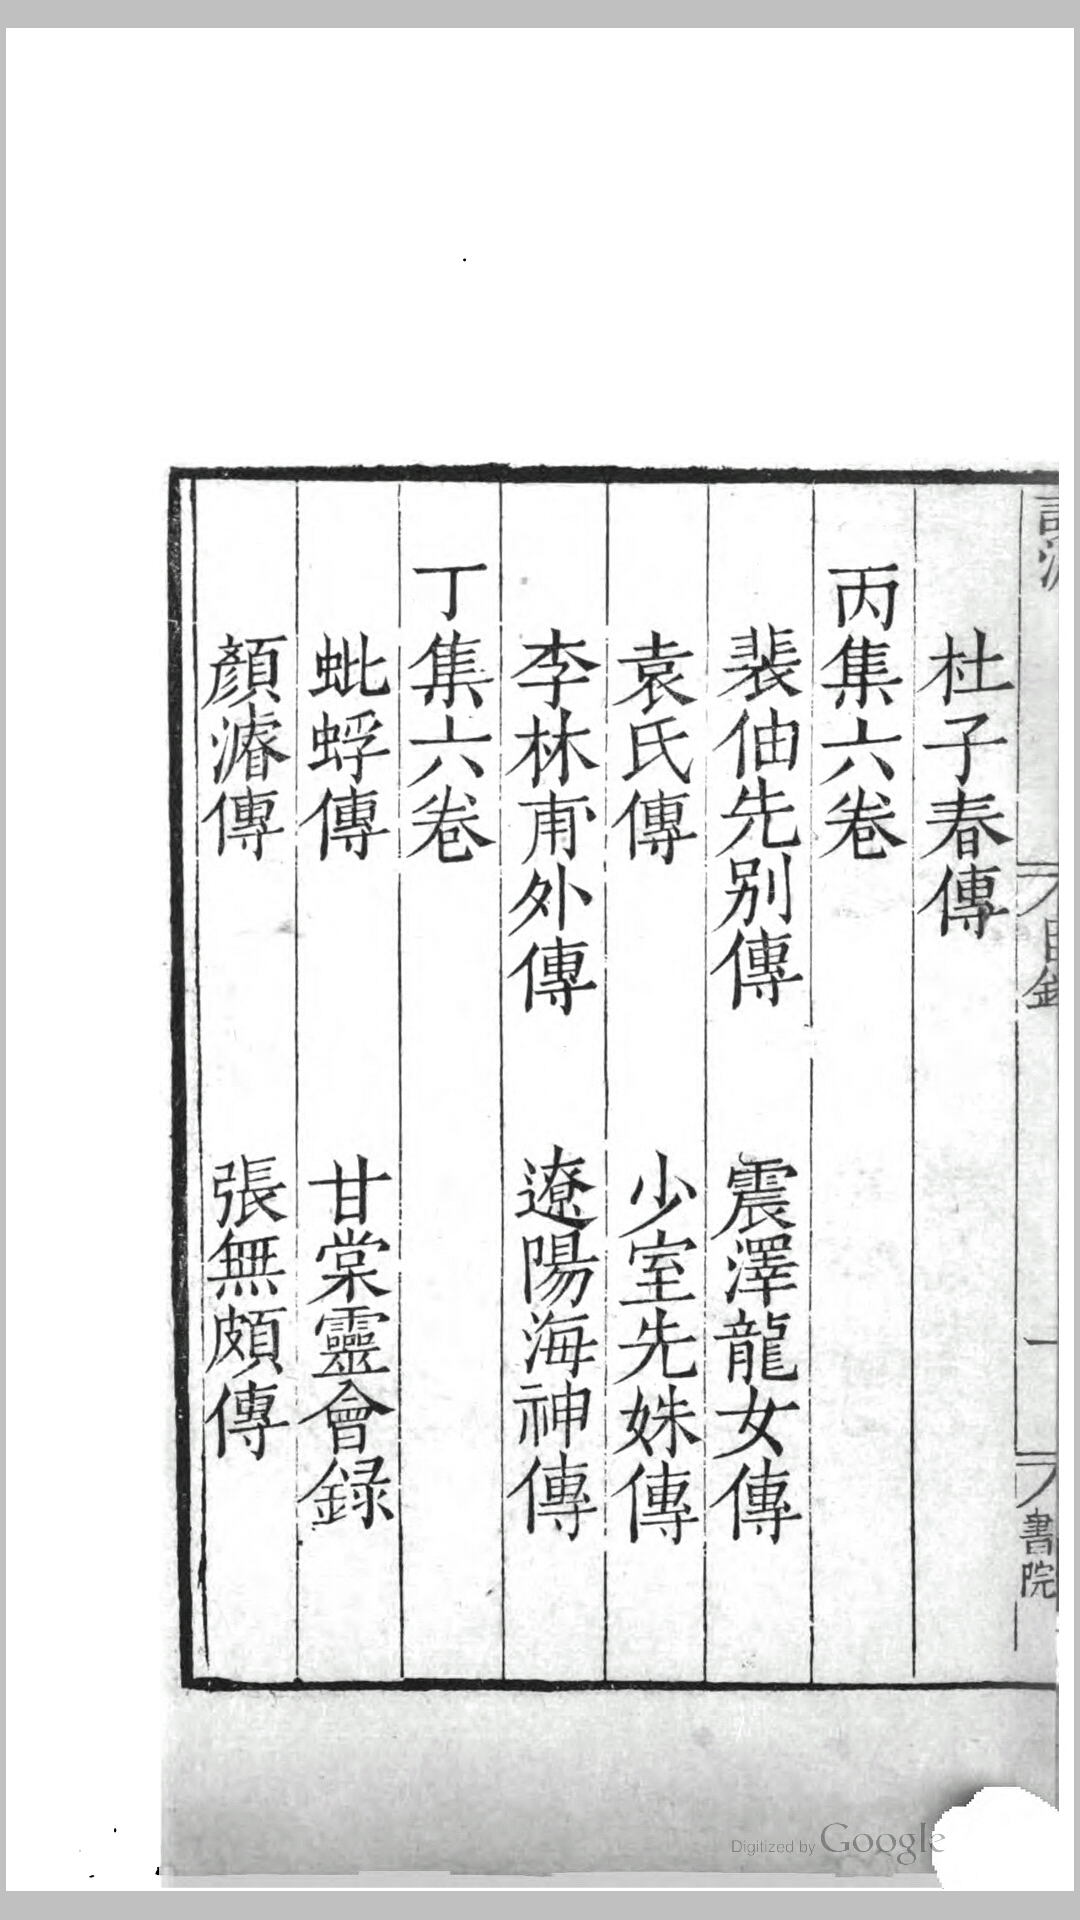 杜子春傳
丙集六卷
裴伷先別傳　震澤龍女傳
袁氏傳　少室先姝傳
李林甫外傳　遼陽海神傳
丁集六卷
蚍蜉傳　甘棠靈會録
顏濬傳　張無頗傳
目錄
一
書院
Digitized by Google